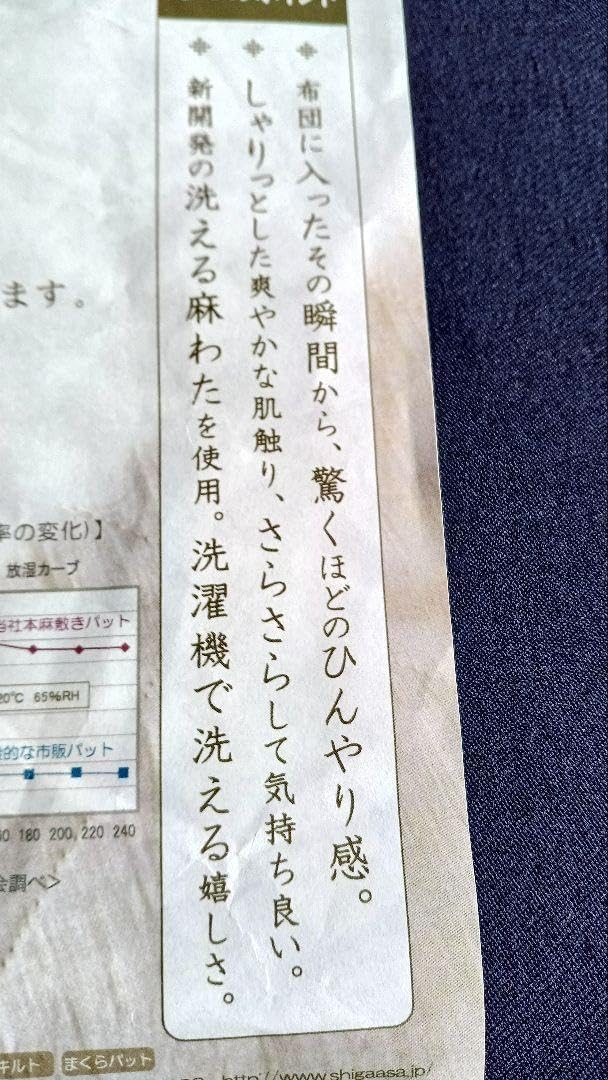 布団に入ったその瞬間から、驚くほどのひんやり感。
しゃりっとした爽やかな肌触り、さらさらして気持ち良い。
新開発の洗える麻わたを使用。洗濯機で洗える嬉しさ。
ます。
率の変化)】
放湿カーブ
当社本麻敷きパット
20℃ 65%RH
的な市販パット
180 200 220 240
会調べ>
キルト
まくらパット
http://www.shigaasa.jp/